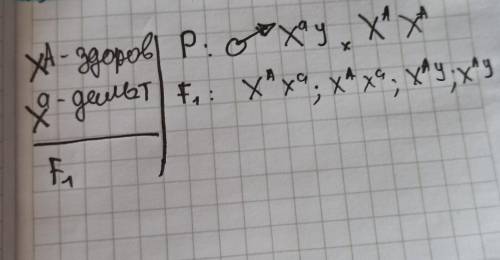 Xᴬ - здоров
Xᵃ - дельт
F₁
P: ♂ Xᵃy × Xᴬ Xᴬ
F₁: Xᴬ Xᵃ; Xᴬ Xᵃ; Xᴬy; Xᴬy